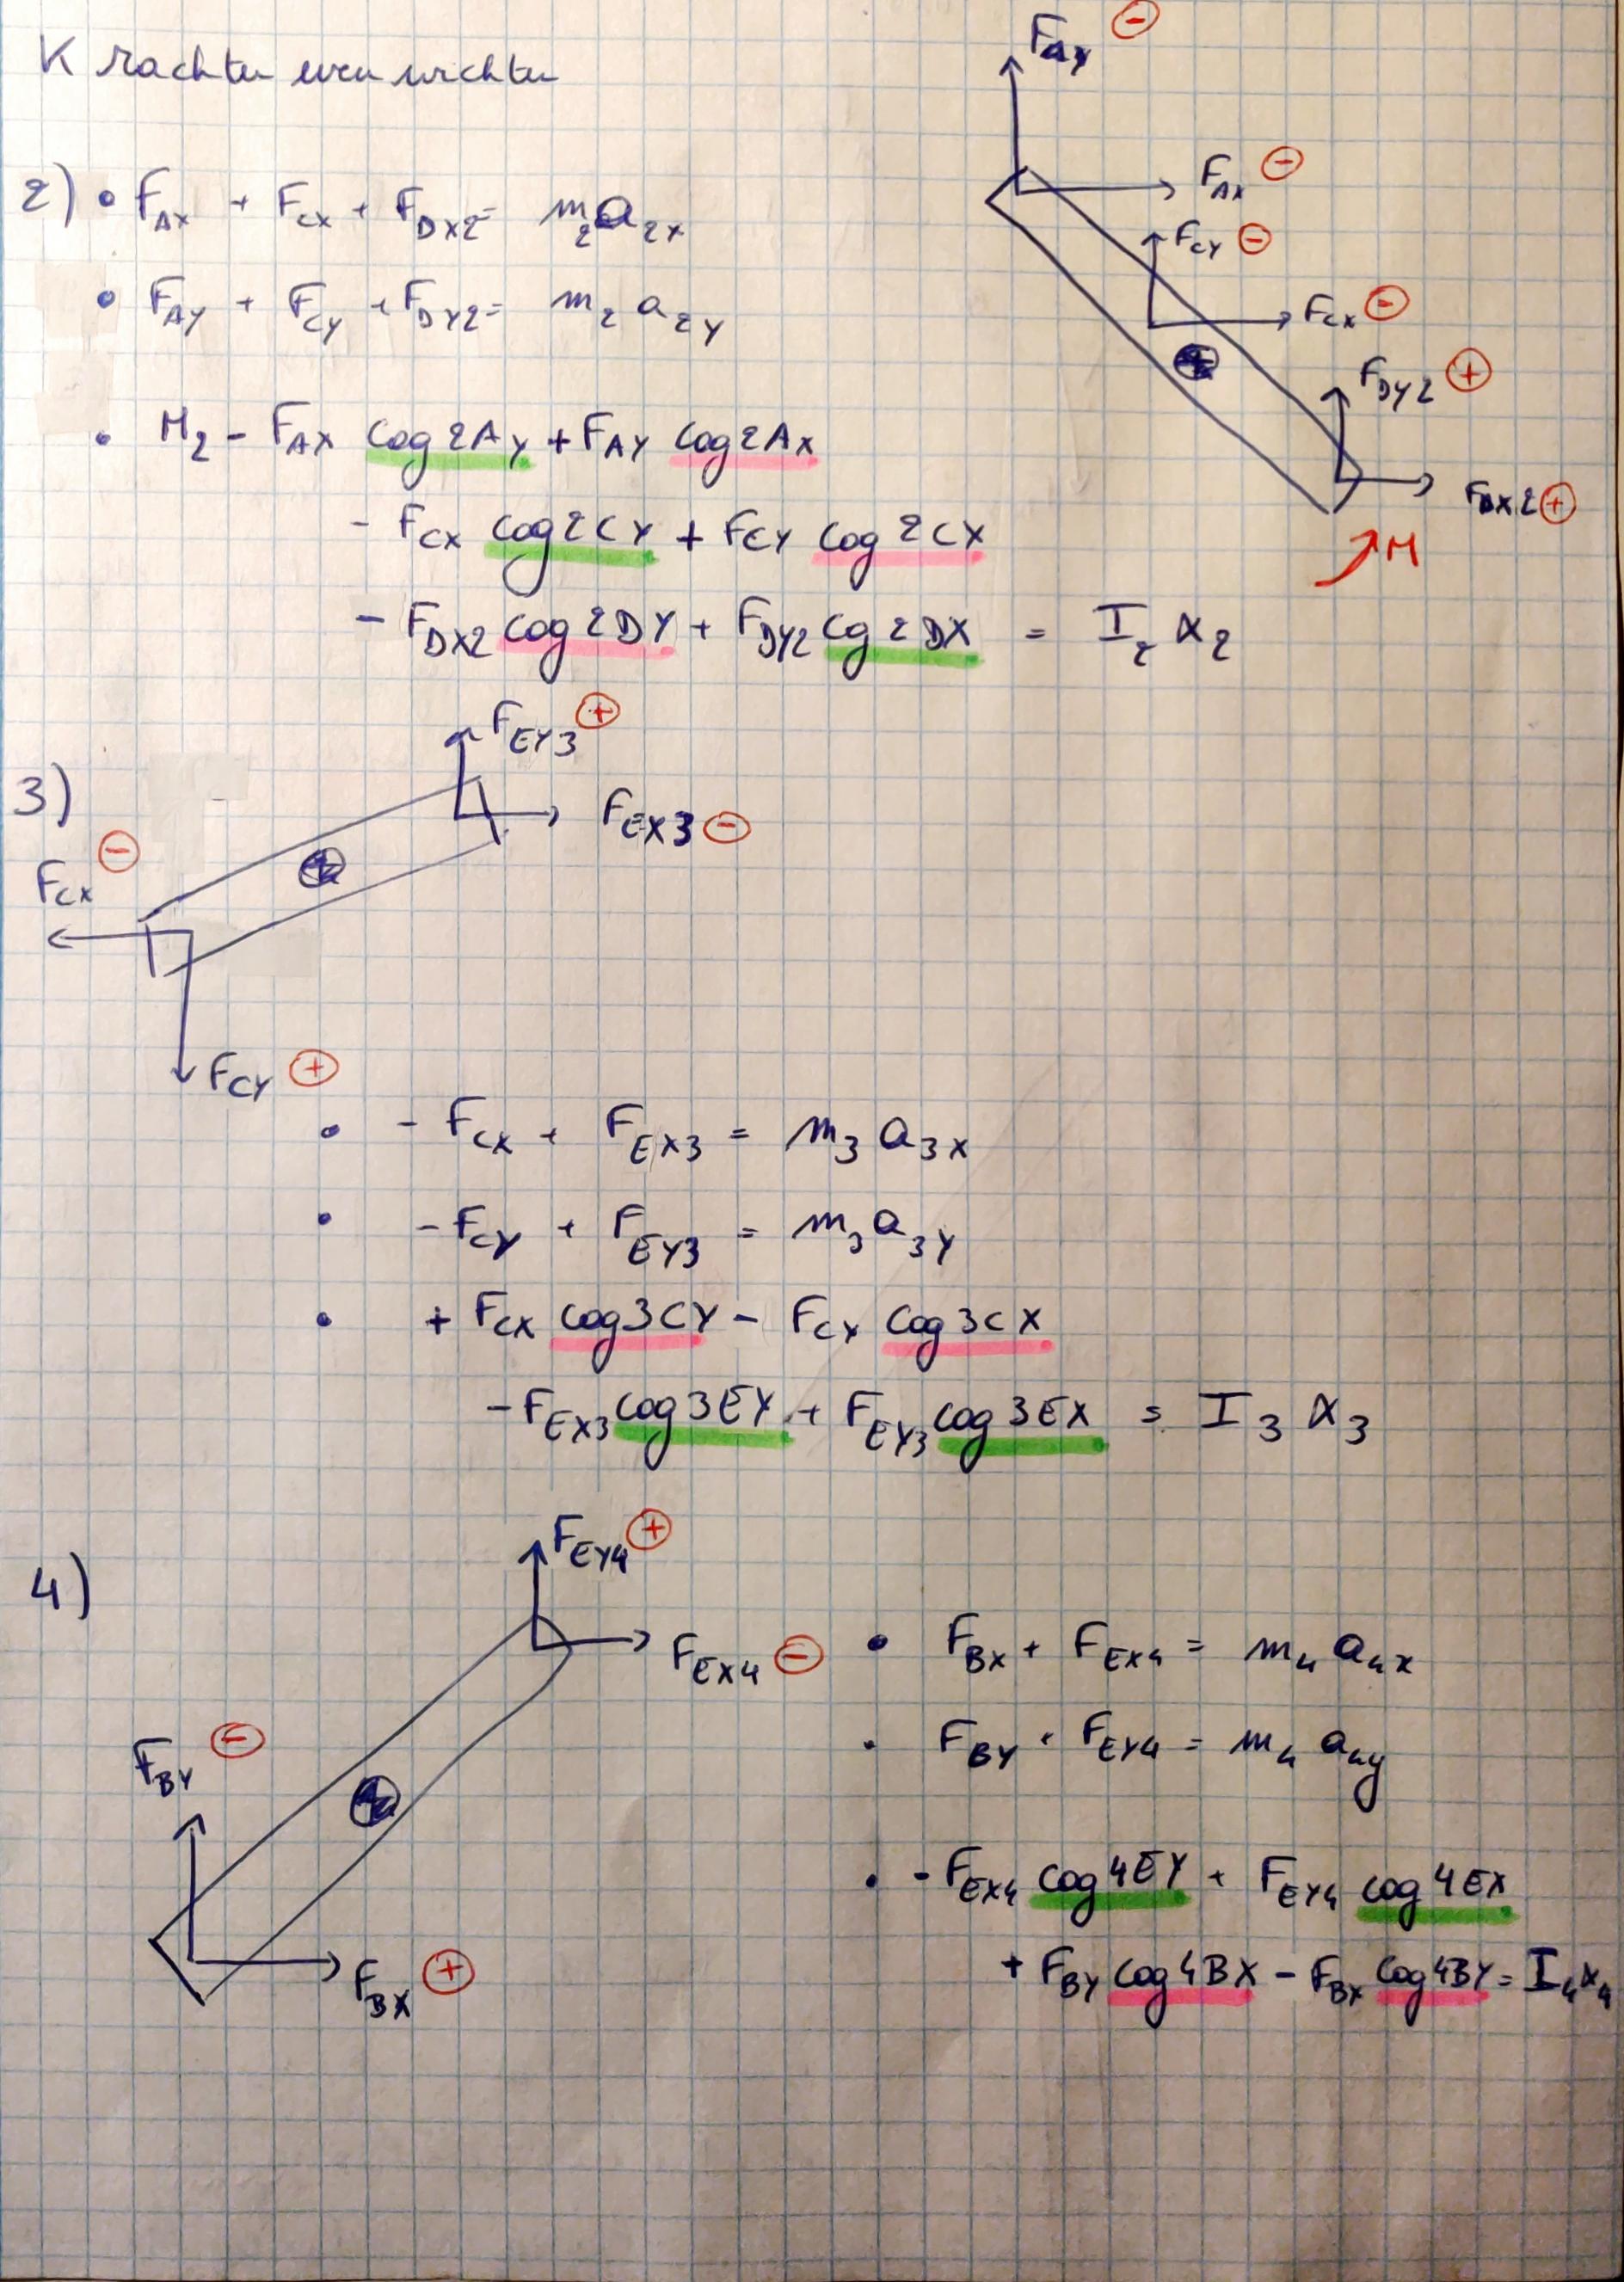 Krachten evenwichten
2) • F_AX + F_CX + F_DX2 = m_2 a_2X
• F_AY + F_CY + F_DY2 = m_2 a_2Y
• M_2 - F_AX cog2AY + F_AY cog2AX
- F_CX cog2CY + F_CY cog2CX
- F_DX2 cog2DY + F_DY2 cg2DX = I_2 α_2
F_AY ⊖
F_AX ⊖
F_CY ⊖
F_CX ⊖
F_DY2 ⊕
F_DX2 ⊕
M
3)
F_EY3 ⊕
F_EX3 ⊖
F_CX ⊖
F_CY ⊕
• - F_CX + F_EX3 = m_3 a_3X
• - F_CY + F_EY3 = m_3 a_3Y
• + F_CX cog3CY - F_CY cog3CX
- F_EX3 cog3EY + F_EY3 cog3EX = I_3 α_3
4)
F_EY4 ⊕
F_EX4 ⊖
F_BY ⊖
F_BX ⊕
• F_BX + F_EX4 = m_4 a_4x
• F_BY + F_EY4 = m_4 a_4y
• - F_EX4 cog4EY + F_EY4 cog4EX
+ F_BY cog4BX - F_BX cog4BY = I_4 α_4